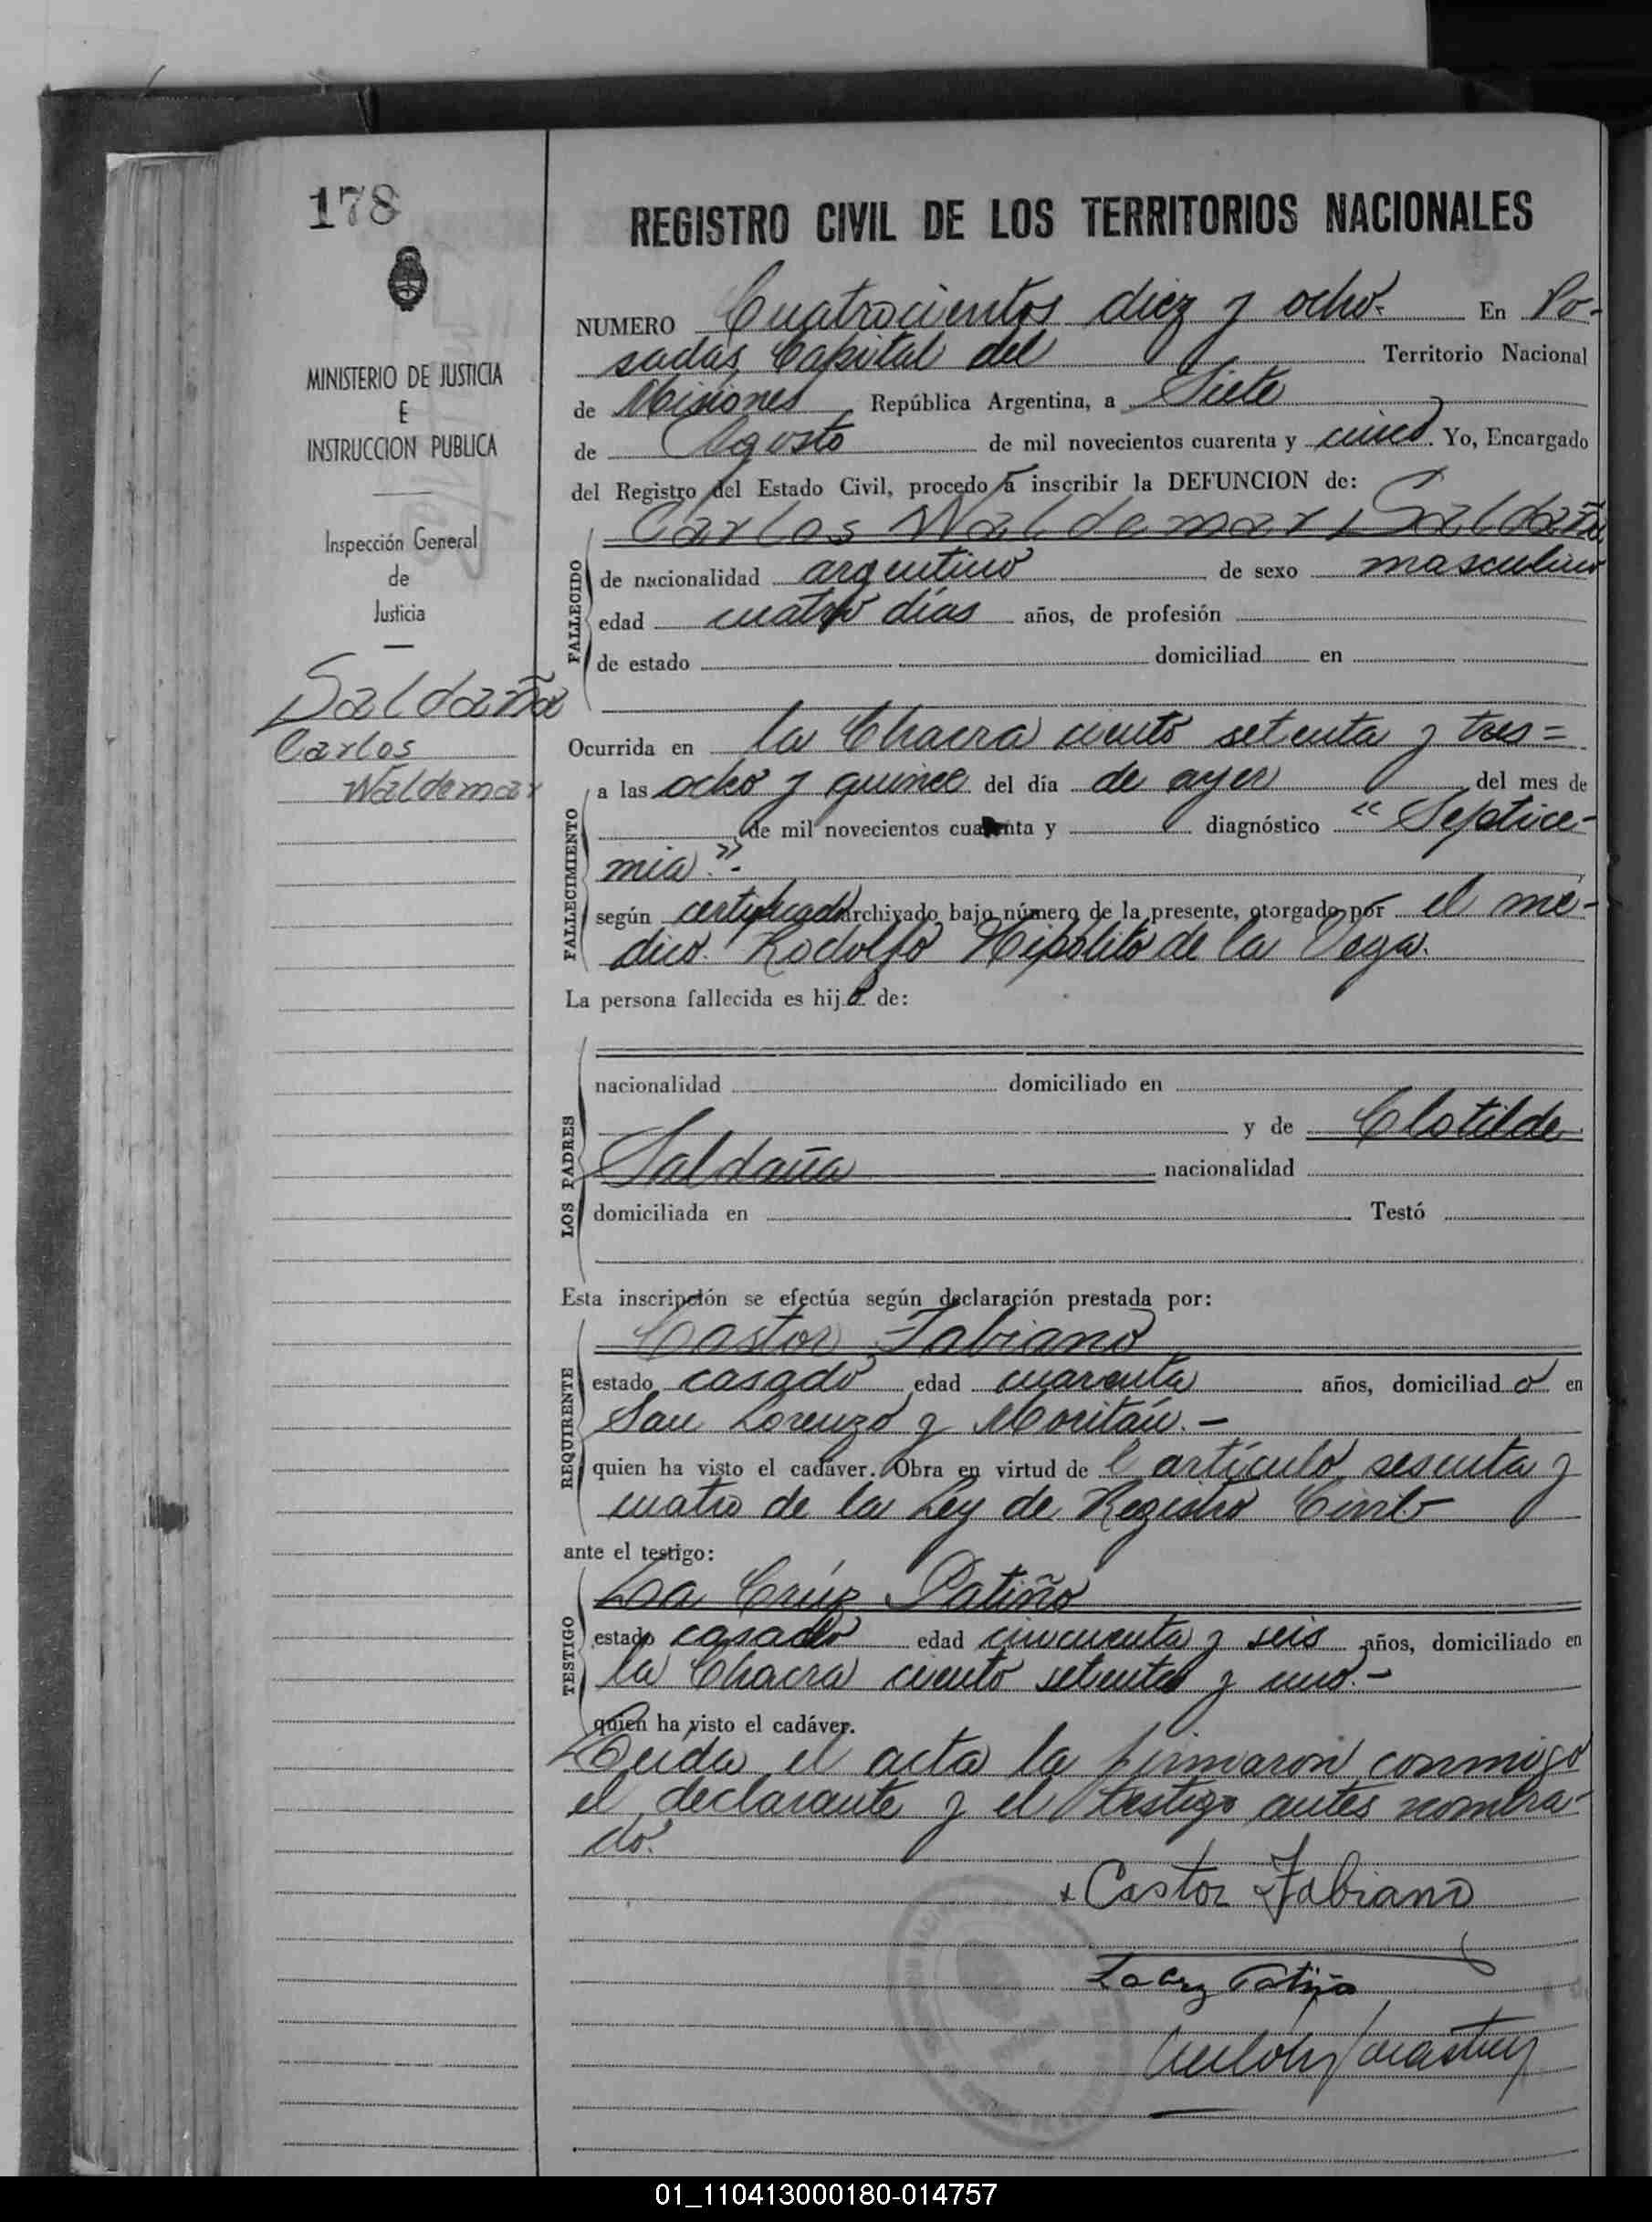 178
REGISTRO CIVIL DE LOS TERRITORIOS NACIONALES
MINISTERIO DE JUSTICIA
E
INSTRUCCION PUBLICA
Inspección General
de
Justicia
Saldaña
Carlos
Waldemar
NUMERO Cuatrocientos diez y ocho.- En Po-
sadas, Capital del Territorio Nacional
de Misiones, República Argentina, a Siete
de Agosto de mil novecientos cuarenta y cinco. Yo, Encargado
del Registro del Estado Civil, procedo a inscribir la DEFUNCION de:
Carlos Waldemar Saldaña
FALLECIDO
de nacionalidad argentino de sexo masculino
edad cuatro días años, de profesión
de estado domiciliad en
Ocurrida en la Chacra ciento setenta y tres=
FALLECIMIENTO
a las ocho y quince del día de ayer del mes de
de mil novecientos cuarenta y diagnóstico "Septice-
mia".-
según certificado archivado bajo número de la presente, otorgado por el mé-
dico Rodolfo Hipólito de la Vega.
La persona fallecida es hijo de:
LOS PADRES
nacionalidad domiciliado en
y de Clotilde
Saldaña nacionalidad
domiciliada en Testó
Esta inscripción se efectúa según declaración prestada por:
Castor Fabiano
REQUIRENTE
estado casado edad cuarenta años, domiciliado en
San Lorenzo y Moritán.-
quien ha visto el cadáver. Obra en virtud del artículo sesenta y
cuatro de la Ley de Registro Civil-
ante el testigo:
La Crúz Patiño
TESTIGO
estado casado edad cincuenta y seis años, domiciliado en
la Chacra ciento setenta y uno.-
quien ha visto el cadáver.
Leída el acta la firmaron conmigo
el declarante y el testigo antes nombra-
do.
Castor Fabiano
La Cruz Patiño
01_110413000180-014757